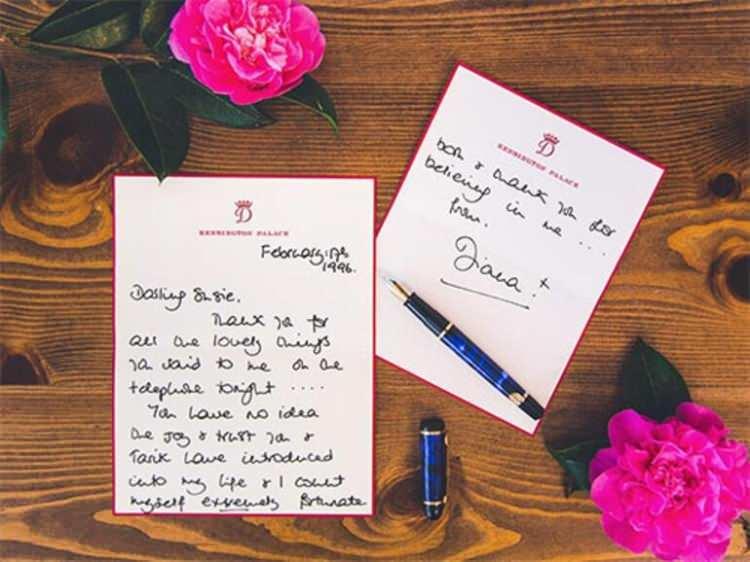 D
KENSINGTON PALACE
February 17th
1996.
Darling Susie,
Thank you for
all the lovely things
you said to me on the
telephone tonight ....
You have no idea
the joy & trust you &
Tarik have introduced
into my life & I count
myself extremely fortunate
D
KENSINGTON PALACE
both & thank you for
believing in me ...
from.
Diana. x